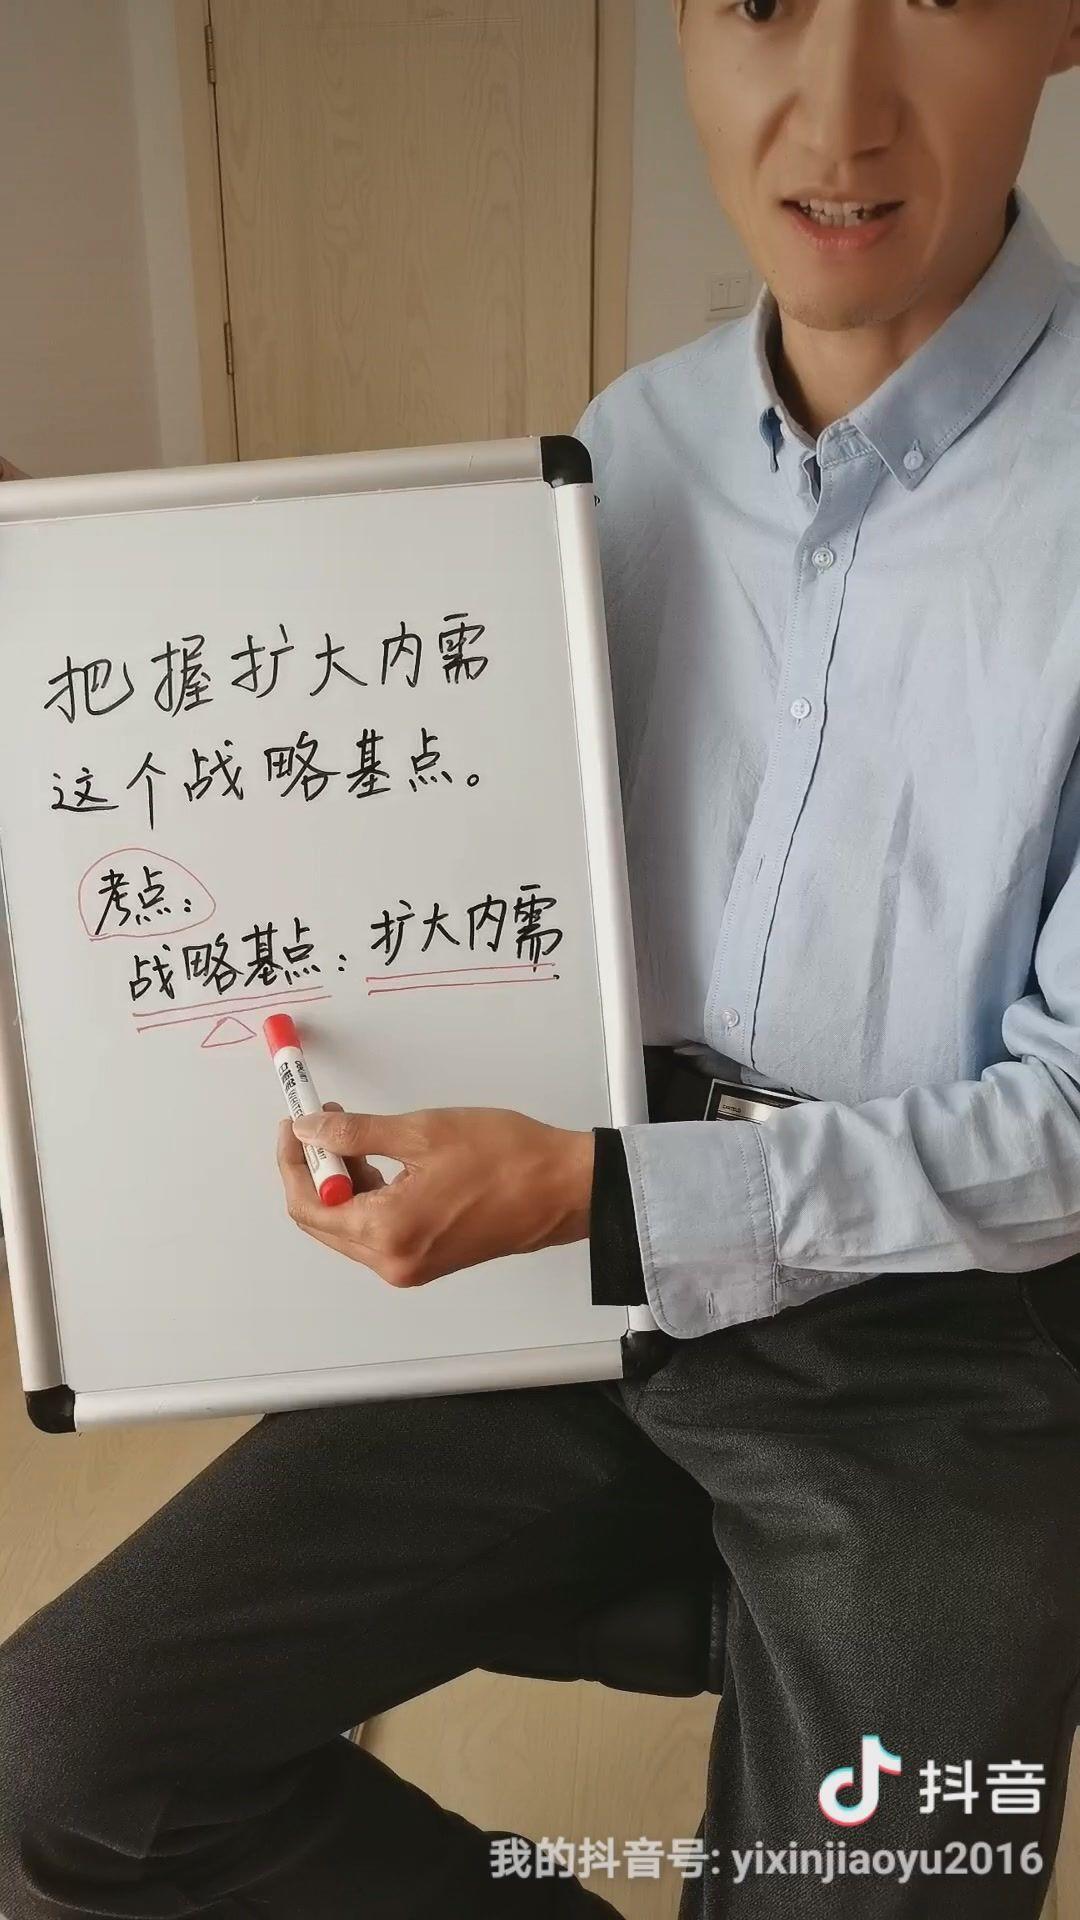 把握扩大内需
这个战略基点。
考点：
战略基点：扩大内需
抖音
我的抖音号: yixinjiaoyu2016